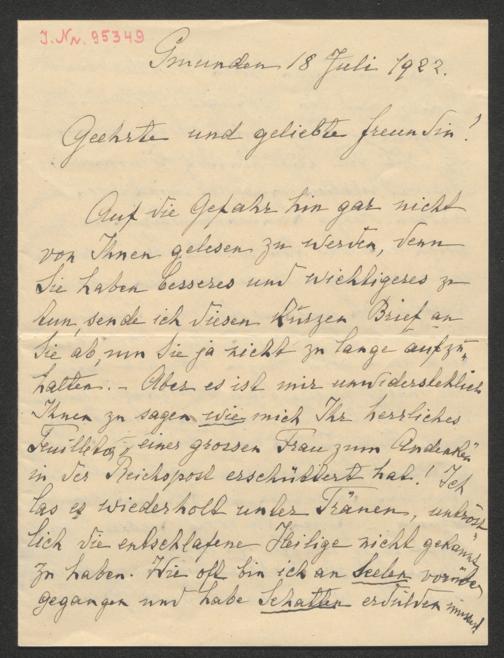 J. Nr. 95349
Gmunden 18 Juli 1922.
Geehrte und geliebte Freundin!
Auf die Gefahr hin gar nicht
von Ihnen gelesen zu werden, denn
Sie haben besseres und wichtigeres zu
tun, sende ich diesen kurzen Brief an
Sie ab, um Sie ja nicht zu lange aufzu„
halten. – Aber es ist mir unwiderstehlich
Ihnen zu sagen wie mich Ihr herrliches
Feuilleton, einer grossen Frau zum Andenken"
in der Reichspost erschüttert hat! Ich
las es wiederholt unter Tränen, untröst
lich die entschlafene Heilige nicht gekannt
zu haben. Wie oft bin ich an Seelen vorüber
gegangen und habe Schatten erdulden müssen